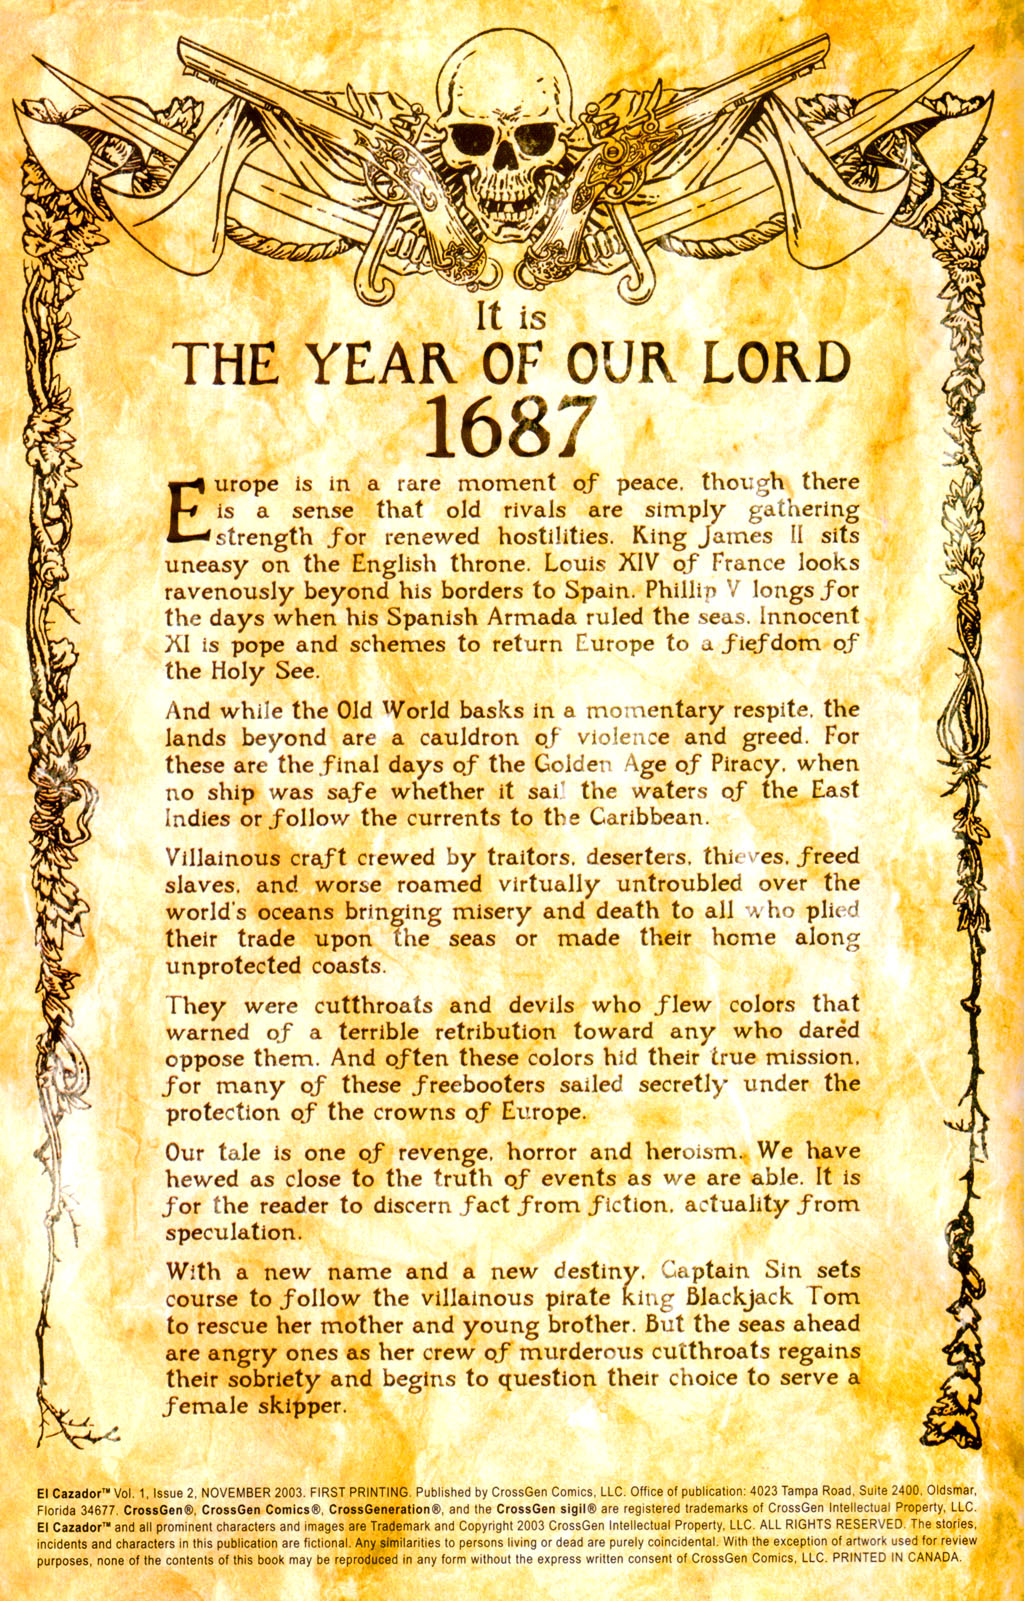 It is
THE YEAR OF OUR LORD
1687
Europe is in a rare moment of peace, though there
is a sense that old rivals are simply gathering
strength for renewed hostilities. King James II sits
uneasy on the English throne. Louis XIV of France looks
ravenously beyond his borders to Spain. Phillip V longs for
the days when his Spanish Armada ruled the seas. Innocent
XI is pope and schemes to return Europe to a fiefdom of
the Holy See.
And while the Old World basks in a momentary respite, the
lands beyond are a cauldron of violence and greed. For
these are the final days of the Golden Age of Piracy, when
no ship was safe whether it sail the waters of the East
Indies or follow the currents to the Caribbean.
Villainous craft crewed by traitors, deserters, thieves, freed
slaves, and worse roamed virtually untroubled over the
world's oceans bringing misery and death to all who plied
their trade upon the seas or made their home along
unprotected coasts.
They were cutthroats and devils who flew colors that
warned of a terrible retribution toward any who dared
oppose them. And often these colors hid their true mission,
for many of these freebooters sailed secretly under the
protection of the crowns of Europe.
Our tale is one of revenge, horror and heroism. We have
hewed as close to the truth of events as we are able. It is
for the reader to discern fact from fiction, actuality from
speculation.
With a new name and a new destiny, Captain Sin sets
course to follow the villainous pirate king Blackjack Tom
to rescue her mother and young brother. But the seas ahead
are angry ones as her crew of murderous cutthroats regains
their sobriety and begins to question their choice to serve a
female skipper.
El Cazador™ Vol. 1, Issue 2, NOVEMBER 2003. FIRST PRINTING. Published by CrossGen Comics, LLC. Office of publication: 4023 Tampa Road, Suite 2400, Oldsmar,
Florida 34677. CrossGen®, CrossGen Comics®, CrossGeneration®, and the CrossGen sigil® are registered trademarks of CrossGen Intellectual Property, LLC.
El Cazador™ and all prominent characters and images are Trademark and Copyright 2003 CrossGen Intellectual Property, LLC. ALL RIGHTS RESERVED. The stories,
incidents and characters in this publication are fictional. Any similarities to persons living or dead are purely coincidental. With the exception of artwork used for review
purposes, none of the contents of this book may be reproduced in any form without the express written consent of CrossGen Comics, LLC. PRINTED IN CANADA.